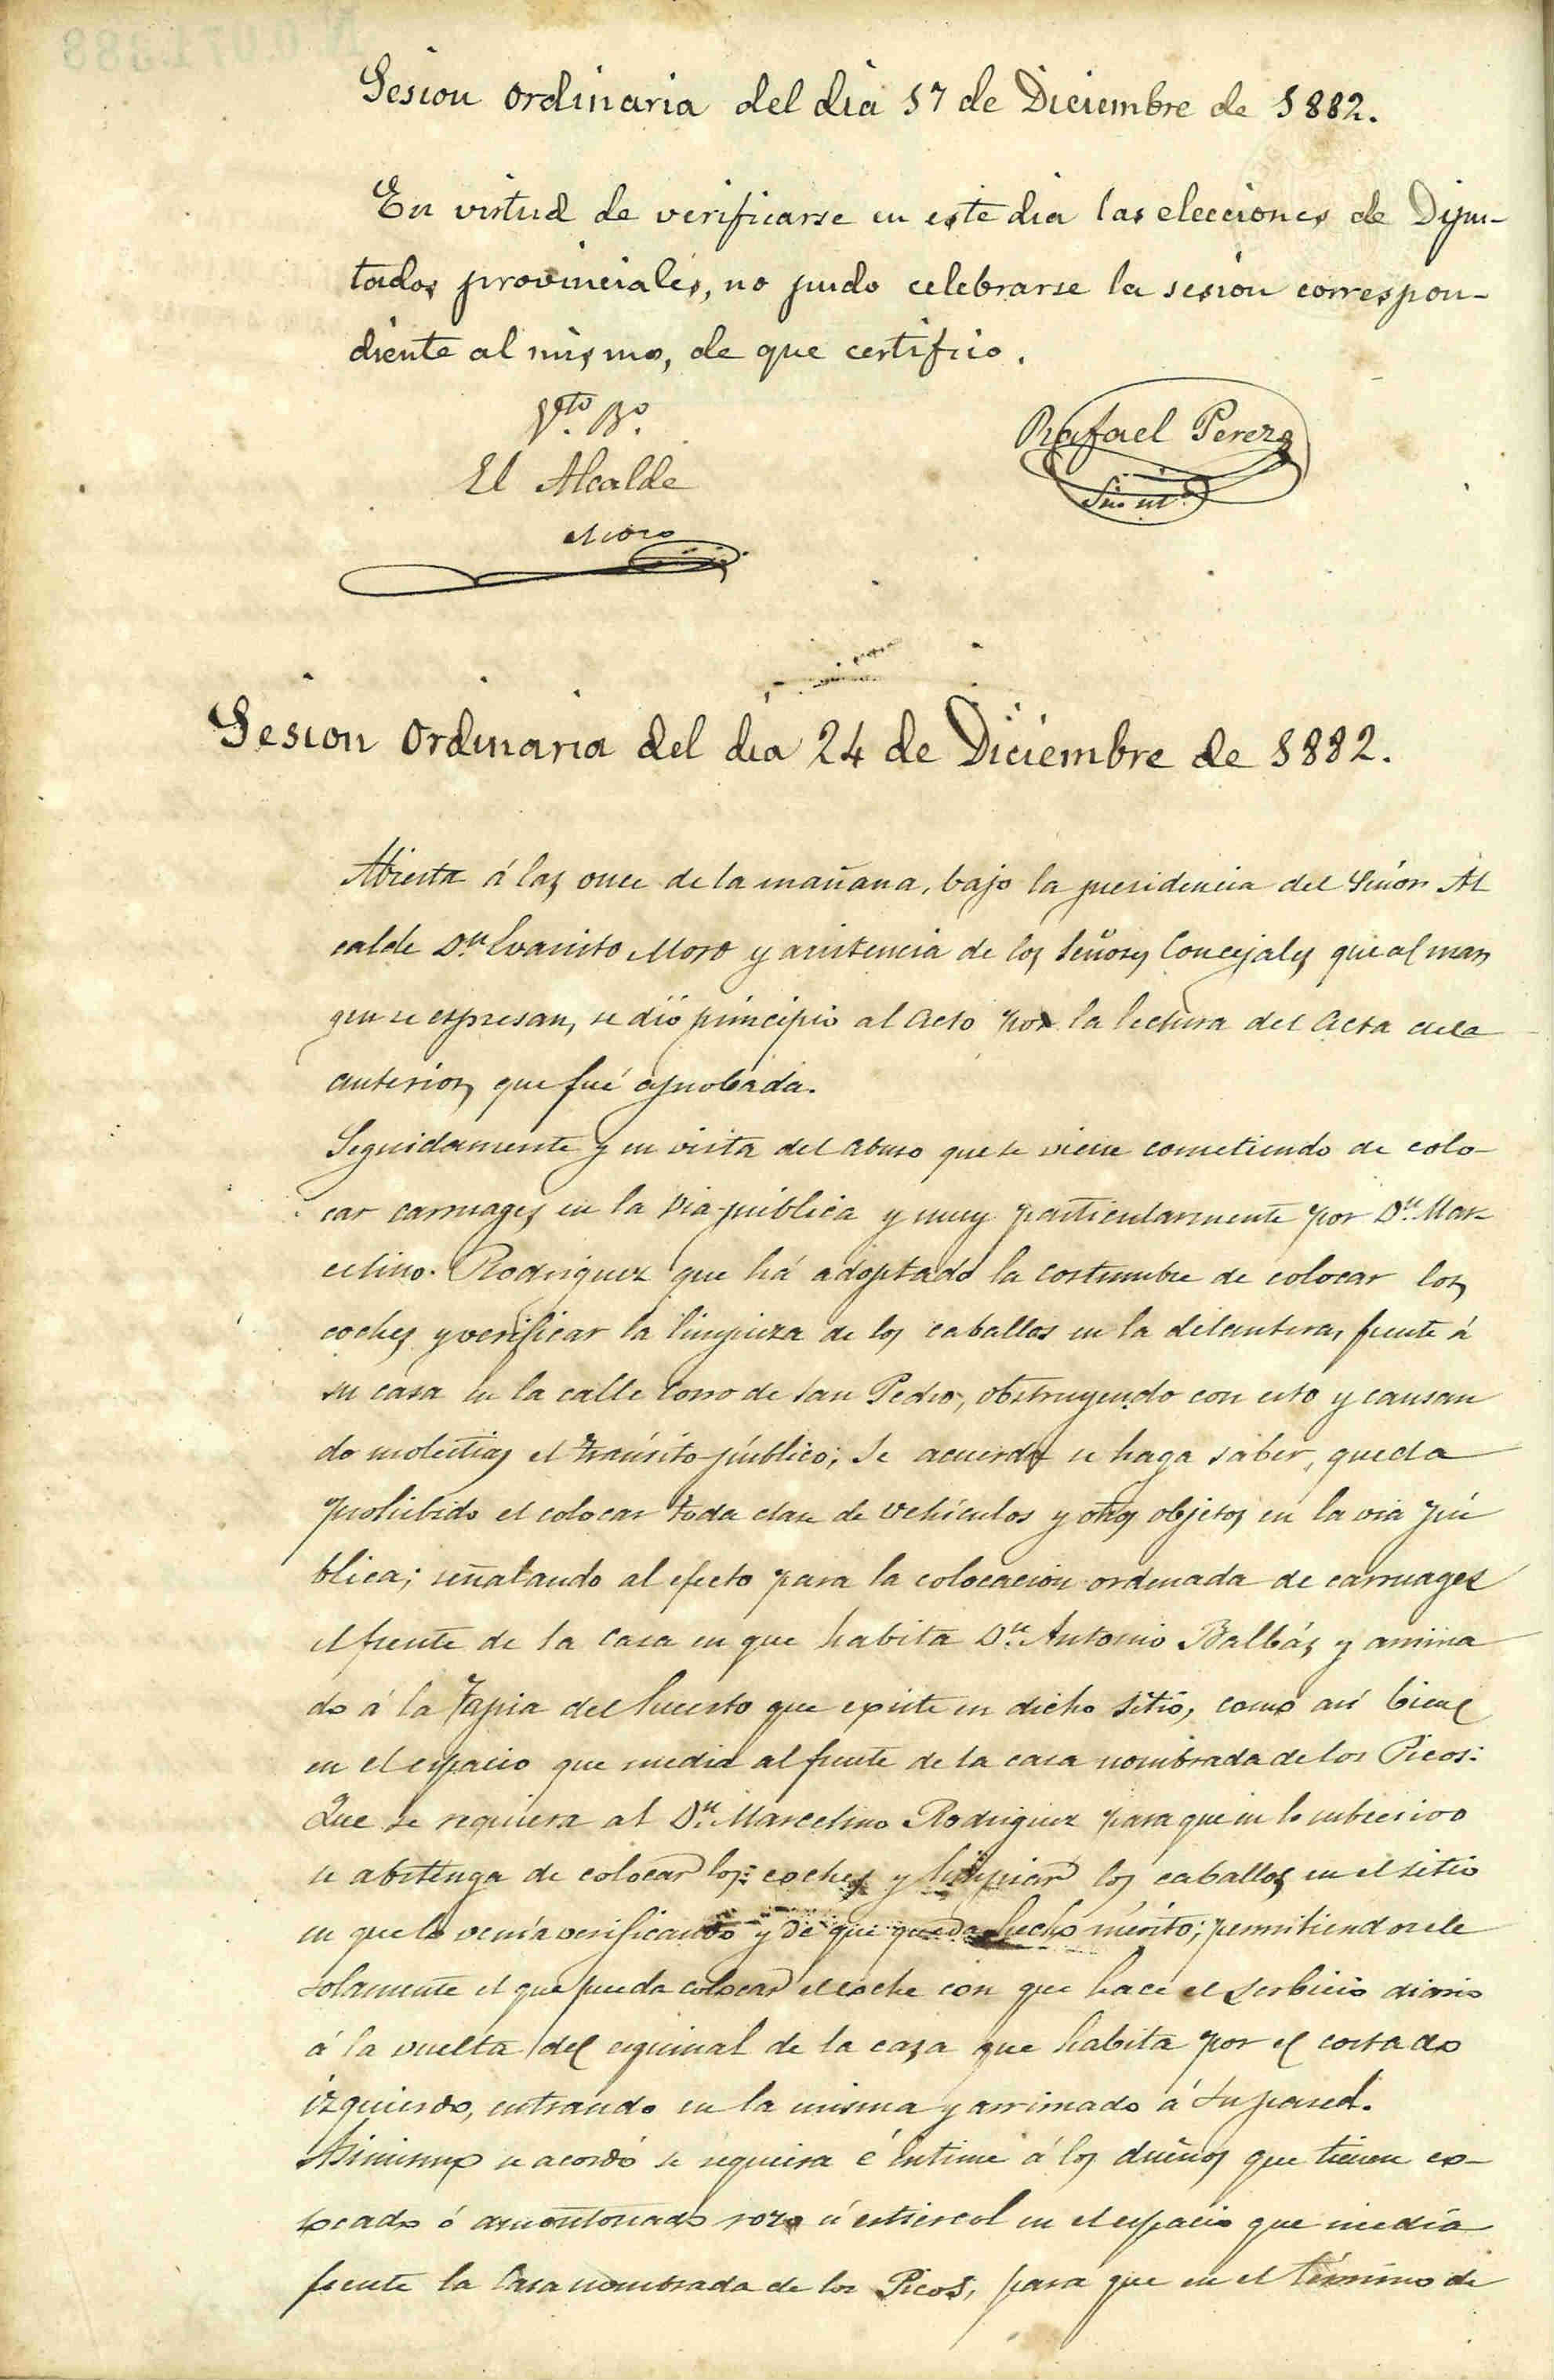 Sesion ordinaria del dia 17 de Diciembre de 1882.
En virtud de verificarse en este dia las elecciones de Dipu-
tados provinciales, no pudo celebrarse la sesion correspon-
diente al mismo, de que certifico.
Vto. Bo.
El Alcalde
Moro
Rafael Perez
Sesion Ordinaria del dia 24 de Diciembre de 1882.
Abierta á las once de la mañana, bajo la presidencia del Señor Al
calde Dn. Evaristo Moro y asistencia de los Señores Concejales que al mar
gen se espresan, se dió principio al Acto por la lectura del Acta dela
anterior, que fué aprobada.
Seguidamente y en vista del abuso que se viene cometiendo de colo-
car carruages en la via-pública y muy particularmente por Dn. Mar-
celino Rodriguez que há adoptado la costumbre de colocar los
coches y verificar la limpieza de los caballos en la delantera, frente á
su casa en la calle Corro de San Pedro, obstruyendo con esto y causan
do molestias el tránsito público; Se acuerda se haga saber, queda
prohibido el colocar toda clase de vehículos y otros objetos en la via pú
blica; señalando al efecto para la colocacion ordenada de carruages
el frente de la casa en que habita Dn. Antonio Balbás y arrima
do á la tapia del huerto que existe en dicho sitio, como asi bien
en el espacio que media al frente de la casa nombrada de los Picos:
Que se requiera al Dn. Marcelino Rodriguez para que en lo subcesivo
se abstenga de colocar los coches y limpiar los caballos en el sitio
en que lo venía verificando y de que queda hecho mérito; permitiendosele
solamente el que pueda colocar el coche con que hace el serbicio diario
á la vuelta del esquinal de la casa que habita por el costado
izquierdo, entrando en la misma y arrimado á su pared.
Asimismo se acordó se requiera é intime á los dueños que tienen co-
locado ó amontonado rozo ú estiercol en el espacio que media
frente la Casa nombrada de los Picos, para que en el término de